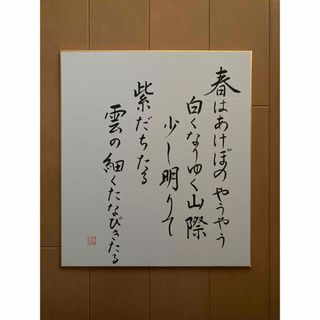 春はあけぼの やうやう
白くなりゆく山際
少し明りて
紫だちたる
雲の細くたなびきたる